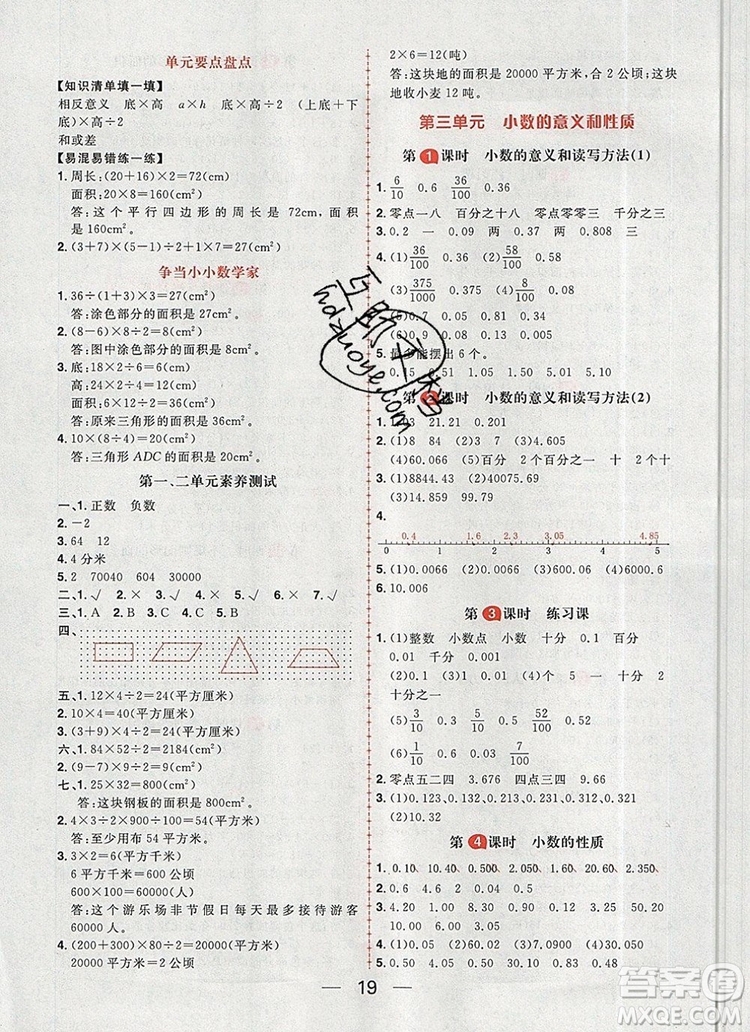 单元要点盘点
【知识清单填一填】
相反意义 底×高 a×h 底×高÷2 (上底+下
底)×高÷2
和或差
【易混易错练一练】
1. 周长:(20+16)×2=72(cm)
面积:20×8=160(cm²)
答:这个平行四边形的周长是 72cm,面积
是 160cm²。
2. (3+7)×(5-1)÷2=20(cm²)
争当小小数学家
1. 36÷(1+3)×3=27(cm²)
答:涂色部分的面积是 27cm²。
2. (8-6)×8÷2=8(cm²)
答:图中涂色部分的面积是 8cm²。
3. 底:18×2÷6=6(cm)
高:24×2÷4=12(cm)
面积:6×12÷2=36(cm²)
答:原来三角形的面积是 36cm²。
4. 10×(8÷4)÷2=10(cm²)
答:三角形 ADC 的面积是 10cm²。
第一、二单元素养测试
一、1. 正数 负数
2. -2
3. 64 12
4. 4 分米
5. 2 70040 600 2360
二、1. √ 2. × 3. × 4. × 5. √
三、1. A 2. B 3. B 4. C
四、
五、1. 12×4÷2=24(平方厘米)
2. 10×4=40(平方厘米)
六、1. 84×52÷2=2184(cm²)
2. (9-7)×9÷2=9(cm²)
七、1. 25×32=800(cm²)
答:这块钢板的面积是 800cm²。
2. 4×3÷2×9=54(平方米)
答:至少用布 54 平方米。
3. 3×2=6(平方千米)
6 平方千米=600 公顷
600×100=60000(人)
答:这个游乐场非节假日每天最多接待游客
60000 人。
4. (200+300)×80÷2=20000(平方米)
20000 平方米=2 公顷
2×6=12(吨)
答:这块地的面积是 20000 平方米,合 2 公顷,这块
地收小麦 12 吨。
第三单元 小数的意义和性质
第1课时 小数的意义和读写方法(1)
1. 6/10 0.6 36/100 0.36
2. 零点一八 百分之十八 零点零零三 千分之三
3. 0.2 一 0.09 两 0.08 两 0.808 三
4. (1)36/100 0.36 (2)58/100 0.58
(3)375/1000 0.375 (4)8/10 0.8
5. 最多能摆出 6 个。
课时 小数的意义和读写方法(2)
21.7 0.01 0.201
2. (1)8 84 (2)9 3 7 (3)4.605
(4)0.066 (5)百分 2 百分 二 0.02
3. (1)8844.43 (2)40075.24
(3)14.8585 (4)0.001
4.
0.4 1.6 2.3 3.05 4.85
0 1 2 3 4 5
5. (1)0.0066 (2)0.066 (3)0.66 (4)6000.6
6. 10.006
第3课时 练习课
1. (1)整数 小数点 小数 十分 0.1 百分
0.01 千分 0.001
(2)0.1 (3)十 (4)个 5 一 十分 2
十分之一
(5)3/10 0.3 52/100 0.52 21/1000 0.021
(6)1/10 0.1
2. 零点五二四 3.676 四点三零五 4.08
3. (1)0.123,0.132 (2)0.123,0.132,1.023,1.032
(4)10.32
第4课时 小数的性质
1. 0.10 10.40 0.500 1.050 20.200 2.350
2. 0.6 4.6 2.02 0.4
3. 4.20 1.00 8.30 0.45 0.90 3.08
10.00 6.00 3.00
4. (1)0.052 (2)7.0900 (3)9.00
5. 0.50 5.00 0.05
19
互助文档
hdzuoye.com
答案圈
MXQE.COM